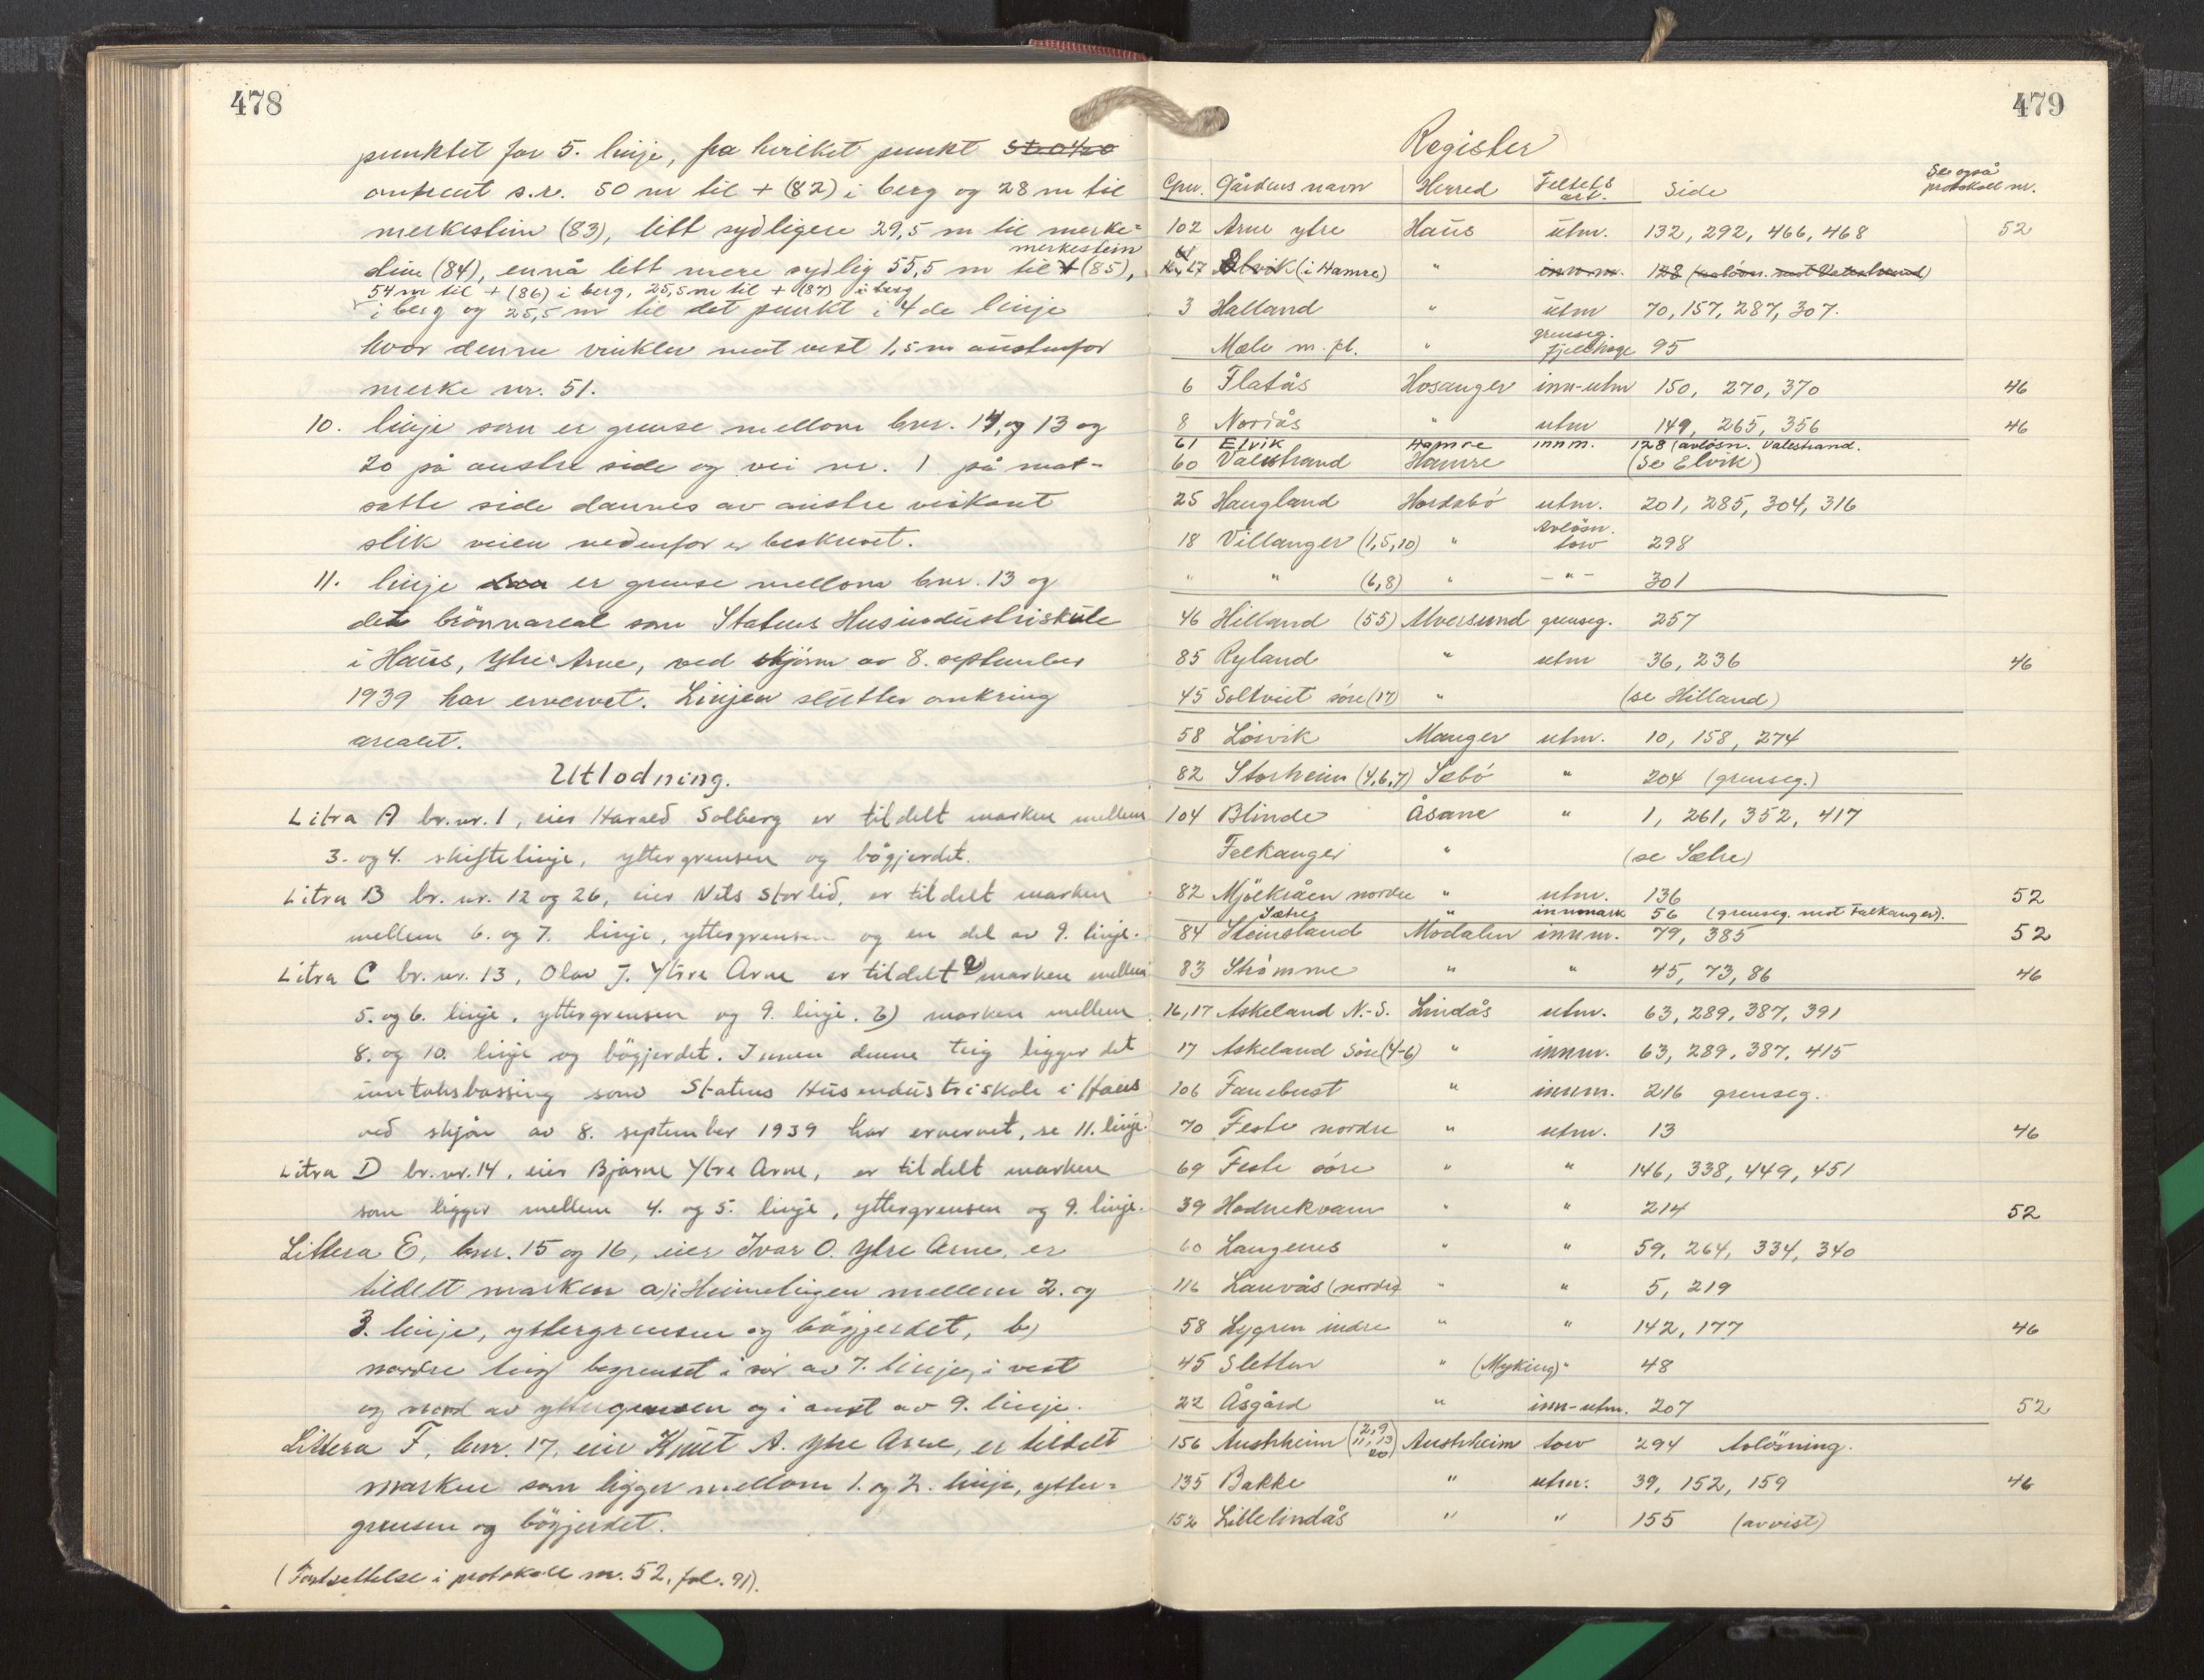 478
punktet for 5. linje, fra hvilket punkt
omtrent s.v. 50 m til + (82) i berg og 28 m til
merkestein (83), litt sydligere 29,5 m til merke=
merkestein
stein (84), ennå litt mere sydlig 55,5 m til + (85),
54 m til + (86) i berg, 25,5 m til + (87) i berg
i berg og 25,5 m til det punkt i 4de linje
hvor denne vinkler mot vest 1,5 m austenfor
merke nr. 51.
10. linje som er grense mellom bnr. 14, og 13 og
20 på austre side og vei nr. 1 på mot-
satte side dannes av austre veikant
slik veien nedenfor er beskrevet.
11. linje er grense mellom bnr. 13 og
det brönnareal som Statens Husindustriskule
i Haus, Ytre Arne, ved skjønn av 8. september
1939 har ervervet. Linjen slutter omkring
arealet.
Utlodning.
Litra A br. nr. 1, eier Harald Solberg er tildelt marken mellem
3. og 4. skiftelinje, yttergrensen og bøgjerdet.
Litra B br. nr. 12 og 26, eier Nils Storlid, er tildelt marken
mellem 6. og 7. linje, yttergrensen og en del av 9. linje.
Litra C br. nr. 13, Olav J. Ytre Arne er tildelt a) marken mellem
5. og 6. linje, yttergrensen og 9. linje. b) marken mellem
8. og 10. linje og bøgjerdet. Innen denne teig ligger det
inntaksbasseng som Statens Husindustriskole i Haus
ved skjøn av 8. september 1939 har ervervet, se 11. linje.
Litra D br. nr. 14, eier Bjarne Ytre Arne, er tildelt marken
som ligger mellem 4. og 5. linje, yttergrensen og 9. linje.
Littera E, bnr. 15 og 16, eier Ivar O. Ytre Arne, er
tildelt marken a) i Heimeteigen mellem 2. og
3. linje, yttergrensen og bögjerdet, b)
nordre teig begrenset i sör av 7. linje, i vest
og nord av yttergrensen og i aust av 9. linje.
Littera F, bnr. 17, eier Knut A. Ytre Arne, er tildelt
marken som ligger mellom 1. og 2. linje, ytter=
grensen og bögjerdet.
(Fortsettelse i protokoll nr. 52, fol. 91).
479
Register
Gnr. Gårdens navn Herred Feltets art. Side Se også protokoll nr.
102 Arne ytre Haus utm. 132, 292, 466, 468 52
Elvik (i Hamre) " innm. 128 (avlösn. mot Valestrand)
3 Halland " utm 70, 157, 287, 307.
Mæle m. fl. " grenseg. fjellhage 95
6 Flatås Hosanger inn-utm 150, 270, 370 46
8 Nordås " utm 149, 265, 356 46
61 Elvik Hamre innm. 128 (avlösn. Valestrand.
60 Valestrand Hamre (Se Elvik)
25 Haugland Hordabö utm. 201, 285, 304, 316
18 Villanger (1,5,10) " Avlösn. torv 298
" " (6,8) " - " - 301
46 Hilland (55) Alversund grenseg. 257
85 Ryland " utm 36, 236 46
45 Soltveit söre (17) " (se Hilland)
58 Løivik Manger utm. 10, 158, 274
82 Storheim (4,6,7) Sæbö " 204 (grenseg.)
104 Blinde Åsane " 1, 261, 352, 417
Falkanger " (se Sætre)
82 Mjölkråen nordre " utm. 136 52
Sætre " innmark 56 (grenseg. mot Falkanger).
84 Steinsland Modalen innm. 79, 385 52
83 Strömme " " 45, 73, 86 46
16, 17 Askeland N.-S. Lindås utm. 63, 289, 387, 391
17 Askeland Söre (4-6) " innm. 63, 289, 387, 415
106 Fanebust " innm. 216 grenseg.
70 Feste nordre " utm. 13 46
69 Feste söre " " 146, 338, 449, 451
39 Hodnekvam " " 214 52
60 Langenes " " 59, 264, 334, 340
116 Lauvås (nordre) " " 5, 219
58 Lygren indre " " 142, 177 46
45 Sletten " (Myking) " 48
22 Åsgård " inn-utm. 207 52
156 Austrheim (2,9 11,13 20) Austrheim torv 294 Avlösning.
135 Bakke " utm. 39, 152, 159 46
152 Lillelindås " " 155 (avvist)